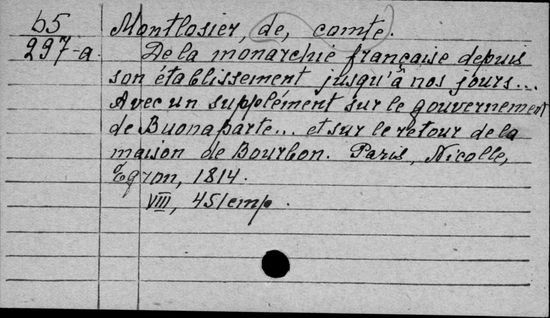 65 Montlosier, de, comte.
297-a De la monarchie française depuis
son établissement jusqu'à nos jours...
Avec un supplément sur le gouvernement
de Buonaparte... et sur le retour de la
maison de Bourbon. Paris, Nicolle,
Egron, 1814.
VIII, 451 стр.